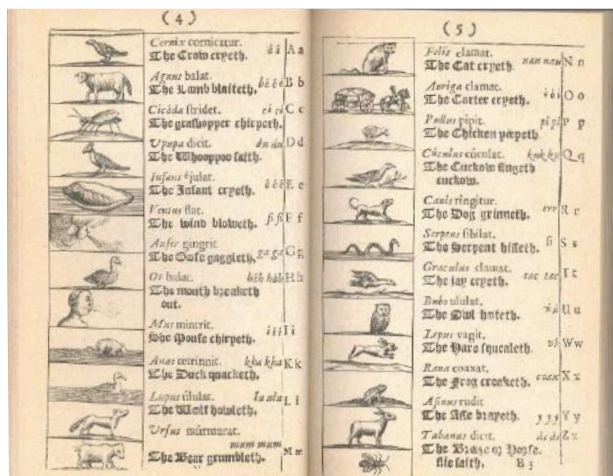 (4)
Cornix cornicatur. á á A a
The Crow cryeth.
Agnus balat. bé é é B b
The Lamb blaiteth.
Cicàda stridet. ci ci C c
The grashopper chirpeth.
Upupa dicit. du du D d
The Whooppoo saith.
Infans éjulat. é é é E e
The Infant cryeth.
Ventus flat. fi fi F f
The wind bloweth.
Anser gingrit. ga ga G g
The Goose gaggleth.
Os halat. háh háh H h
The mouth breatheth
out.
Mus mintrit. í í í I i
The Mouse chirpeth.
Anas tetrinnit. kha kha K k
The Duck quacketh.
Lupus úlulat. lu ulu L l
The Wolf howleth.
Ursus múrmurat.
mum mum M m
The Bear grumbleth.
(5)
Felis clamat. nau nau N n
The Cat cryeth.
Auriga clamat. ó ó ó O o
The Carter cryeth.
Pullus pipit. pi pi P p
The Chicken peepeth.
Cúculus cúculat. kuk ku Q q
The Cuckow singeth
cuckow.
Canis ringitur. err R r
The Dog grinneth.
Serpens sibilat. si S s
The Serpent hisseth.
Graculus clamat. tac tac T t
The Jay cryeth.
Bubo ululat. ú ú U u
The Owl hooteth.
Lepus vagit. W w
The Hare squeaketh.
Rana coaxat. coax X x
The Frog croaketh.
Asinus rudit. y y y Y y
The Asse brayeth.
Tabanus dicit. ds ds Z z
The Breeze or Horse-
flie saith. B 3